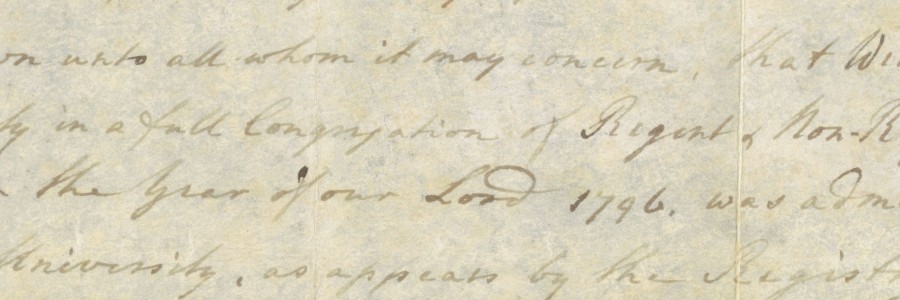 on unto all whom it may concern, that Wi
ly in a full Congregation of Regent & Non-R
the Year of our Lord 1796. was adm
University, as appears by the Regist